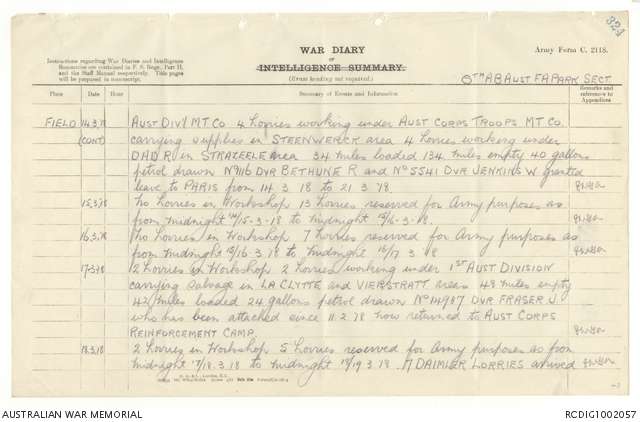 WAR DIARY
OF
INTELLIGENCE SUMMARY.
(Erase heading not required.)
Army Form C. 2118.
Instructions regarding War Diaries and Intelligence
Summaries are contained in F. S. Regs., Part II.
and the Staff Manual respectively. Title pages
will be prepared in manuscript.
AUST F A PARK SECT
Place Date Hour Summary of Events and Information Remarks and references to Appendices
FIELD 14.3.18 AUST DIVL MT CO 4 lorries working under AUST CORPS TROOPS MT CO.
(CONT) carrying supplies in STEENWERCK area 4 lorries working under
DADR in STRAZEELE area 34 miles loaded 134 miles empty 40 gallons
petrol drawn No 116 DVR BETHUNE R and No 5541 DVR JENKINS W granted
leave to PARIS from 14 3 18 to 21 3 18.
15.3.18 No lorries in Workshop 13 lorries reserved for Army purposes as
from midnight 14/15-3-18 to midnight 15/16-3-18.
16.3.18 No lorries in Workshop 7 lorries reserved for Army purposes as
from midnight 15/16-3-18 to midnight 16/17 3-18
17-3-18 2 lorries in Workshop 2 lorries working under 1ST AUST DIVISION
carrying salvage in LA CLYTTE and VIERSTRATT areas 48 miles empty
42 miles loaded 24 gallons petrol drawn No 14987 DVR FRASER J.
who has been attached since 11-2-18 now returned to AUST CORPS
REINFORCEMENT CAMP.
18.3.18 2 lorries in Workshop 5 lorries reserved for Army purposes as from
midnight 17/18-3-18 to midnight 18/19 3-18. DAIMLER LORRIES arrived
AUSTRALIAN WAR MEMORIAL
RCDIG1002057